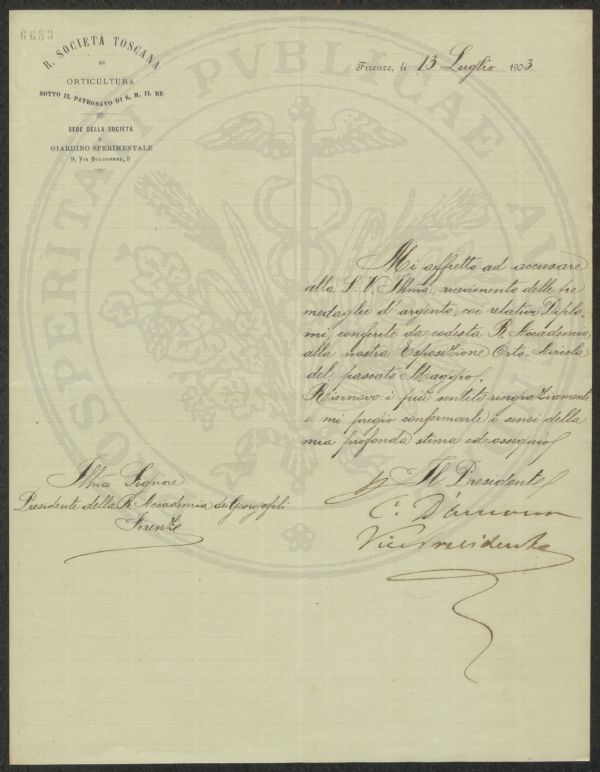 6683
R. SOCIETÀ TOSCANA
DI
ORTICULTURA
SOTTO IL PATRONATO DI S. M. IL RE
SEDE DELLA SOCIETÀ
E
GIARDINO SPERIMENTALE
9, VIA BOLOGNESE, 9
Firenze, li 13 Luglio 1903
Mi affretto ad accusare
alla S. V. Illma, ricevimento delle tre
medaglie d'argento, coi relativi Diplo-
mi, conferite da codesta R. Accademia
alla nostra Esposizione Orto-Avicola
del passato Maggio.
Rinnovo i più sentiti ringraziamenti
e mi pregio confermarle i sensi della
mia profonda stima ed ossequio
Illmo Signore
Presidente della R. Accademia dei Georgofili
Firenze
Il Presidente
C.
Vice Presidente
PVBLICAE